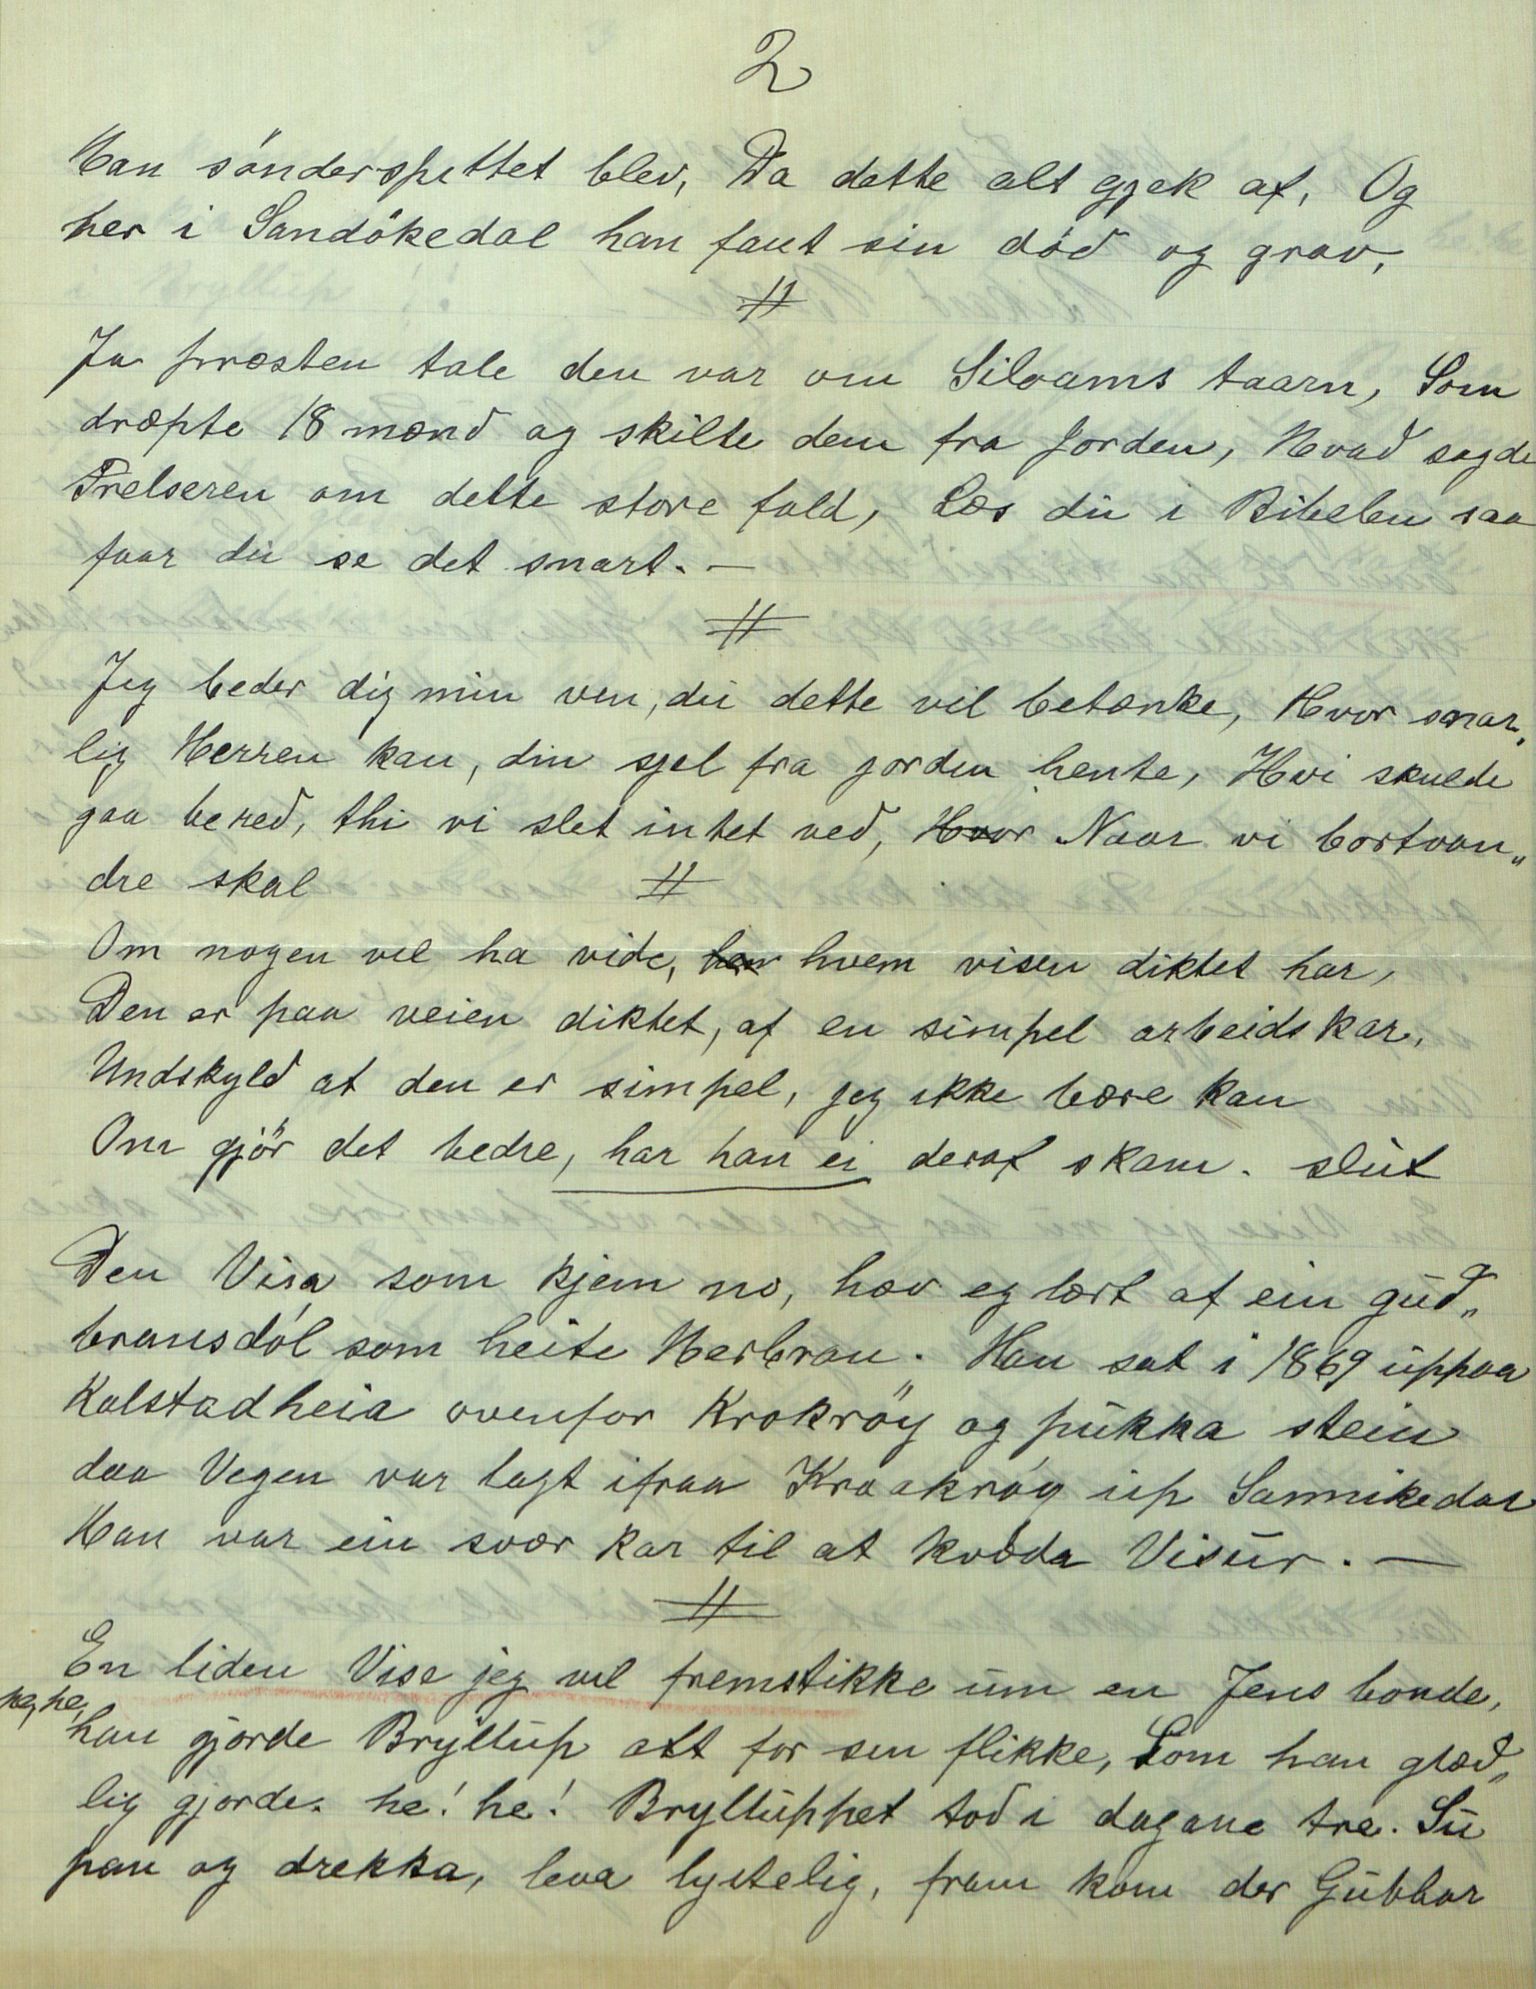 2
Han sönderspittet blev, Da dette alt gjek af, Og
her i Sandökedal han fant sin död og grav,
//
Ja præsten tale den var om Siloams taarn, Som
dræpte 18 mænd og skilte dem fra Jorden, Hvad sagde
Frelseren om dette store fald, Læs du i Bibelen saa
faar du se det snart. —
//
Jeg beder dig min ven, du dette vil betænke, Hvor snar„
lig Herren kan, din sjel fra jorden hente, Hvi skulde
gaa bered, thi vi slet intet ved, Hvor Naar vi bortvan„
dre skal
//
Om nogen vil ha vide, hvem visen diktet har,
Den er paa veien diktet, af en simpel arbeidskar,
Undskyld at den er simpel, jeg ikke bære kan
Om gjör det bedre, har han ei deraf skam. slut
Den Visa som kjem no, hav eg lært af ein gud„
bransdöl som heite Herbran. Han sat i 1869 uppaa
Kalstadheia ovenfor Krokröy og pukka stein
daa Vegen var lagt ifraa Kraakröy up Sannikedal
Han var ein svær kar til at kvæda Visur. —
//
En liden Vise jeg vil fremstikke um en Jens bonde,
he, he,
han gjorde Bryllup alt for sin flikke, Som han glæd„
lig gjorde. he! he! Bryllüppet tod i dagane tre. Su
pan og drekka, leva lystelig, fram kom der Gubbar